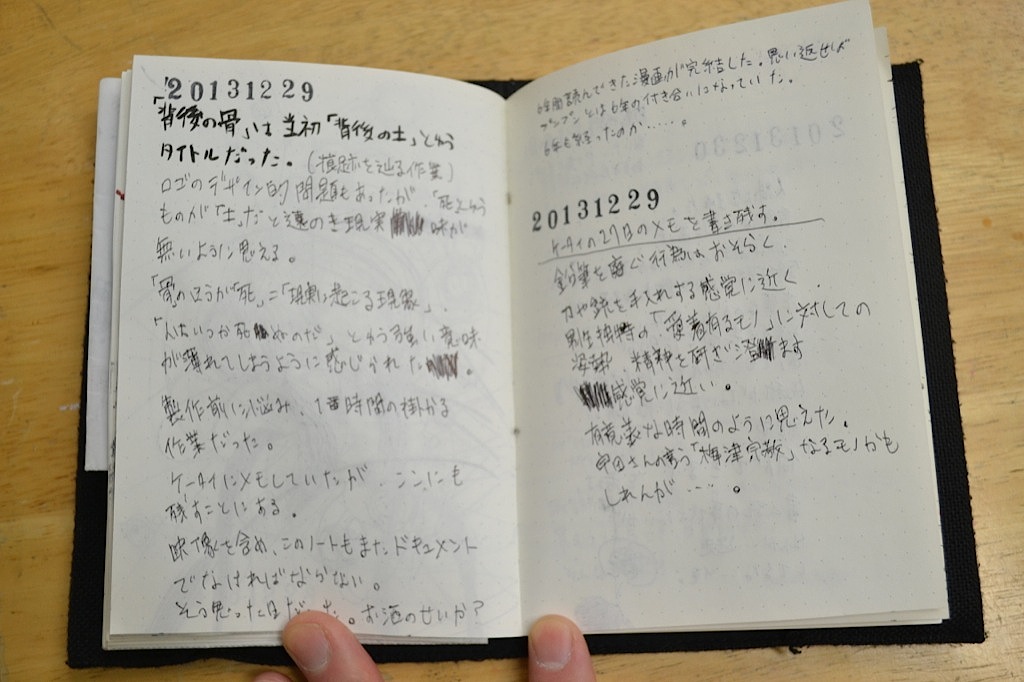 20131229
「背後の骨」は当初「背後の土」という
タイトルだった。(痕跡を辿る作業)
ロゴのデザイン的問題もあったが、「死」という
ものが「土」だと遠のき現実味が
無いように思える。
「骨」のほうが「死」=「現実に起こる現象」、
「人はいつか死ぬのだ」という強い意味
が薄れてしまうように感じられた。
製作前に悩み、1番時間の掛かる
作業だった。
ケータイにメモしていたが、ここにも
残すことにある。
映像を含め、このノートもまたドキュメント
でなければならない。
そう思った日だった。お酒のせいか?
6年間読んできた漫画が完結した。思い返せば
プンプンとは6年の付き合いになっていた。
6年も経ったのか……。
20131229
ケータイの27日のメモを書き残す。
鉛筆を研ぐ行為はおそらく、
刀や銃を手入れする感覚に近く
男性独特の「愛着有るモノ」に対しての
姿勢、精神を研ぎ澄ます
感覚に近い。
有意義な時間のように思えた。
さんの言う「梅津宗敬」なるモノかも
しれんが……。